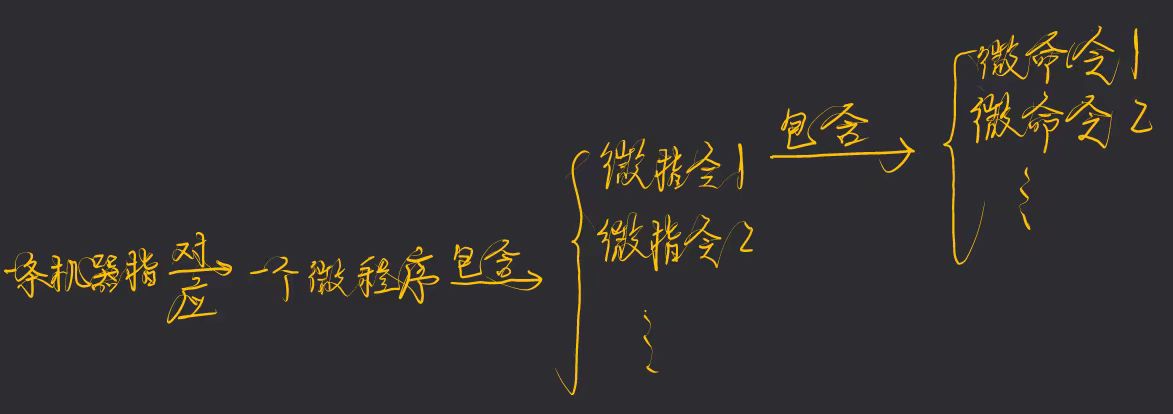 一条机器指
对应
一个微程序
包含
微指令1
微指令2
⋮
包含
微命令1
微命令2
⋮